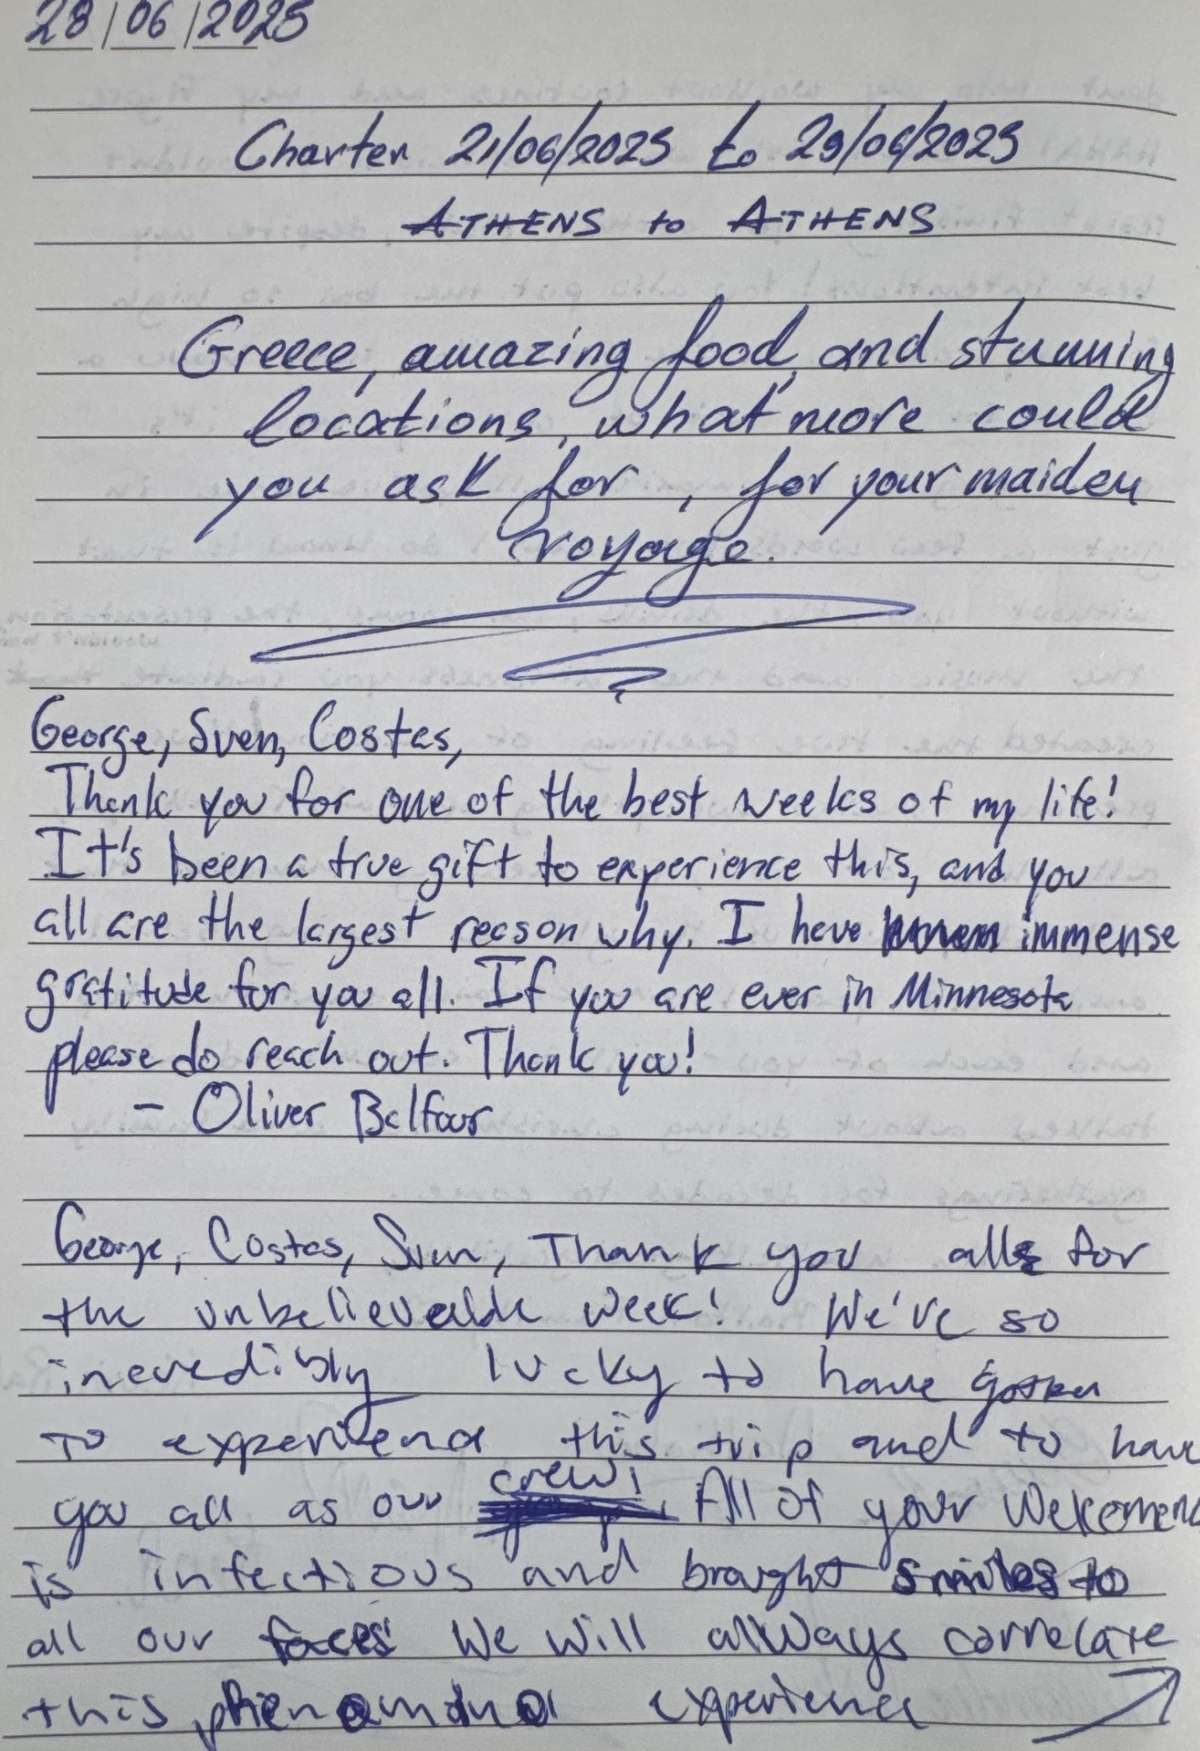 28/06/2025
Charter 21/06/2025 to 29/06/2025
ATHENS to ATHENS
Greece, amazing food, and stunning
locations, what more could
you ask for, for your maiden
voyage.
George, Sven, Costas,
Thank you for one of the best weeks of my life!
It's been a true gift to experience this, and you
all are the largest reason why. I have immense
gratitude for you all. If you are ever in Minnesota
please do reach out. Thank you!
- Oliver Balfour
George, Costas, Sven, Thank you all for
the unbelievable week! We've so
incredibly lucky to have gotten
to experience this trip and to have
you all as our crew! All of your
is infectious and brought smiles to
all our faces! We will allways correlate
this phenominal experience